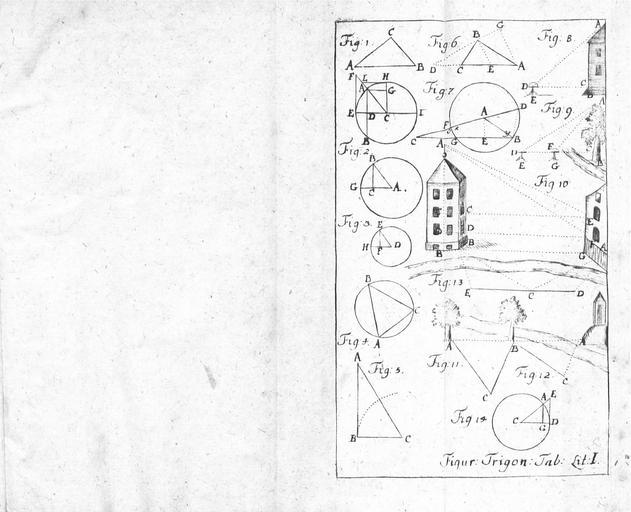 Fig: 1.
A
B
C
Fig: 6
G
B
D
C
E
A
Fig: 8.
A
D
E
C
B
F
L
H
A
G
E
D
C
I
B
Fig: 7
A
D
F
C
G
E
B
Fig: 9.
A
D
F
E
G
B
Fig: 2
B
G
C
A
Fig: 10
A
C
D
B
B
E
F
A
G
Fig: 3.
E
H
F
D
Fig: 13
E
C
D
B
C
A
Fig: 4.
A
B
A
Fig: 5.
A
B
C
Fig: 11.
C
Fig: 12
C
Fig: 14
A
E
C
G
D
Figur: Trigon: Tab: Lit: I.